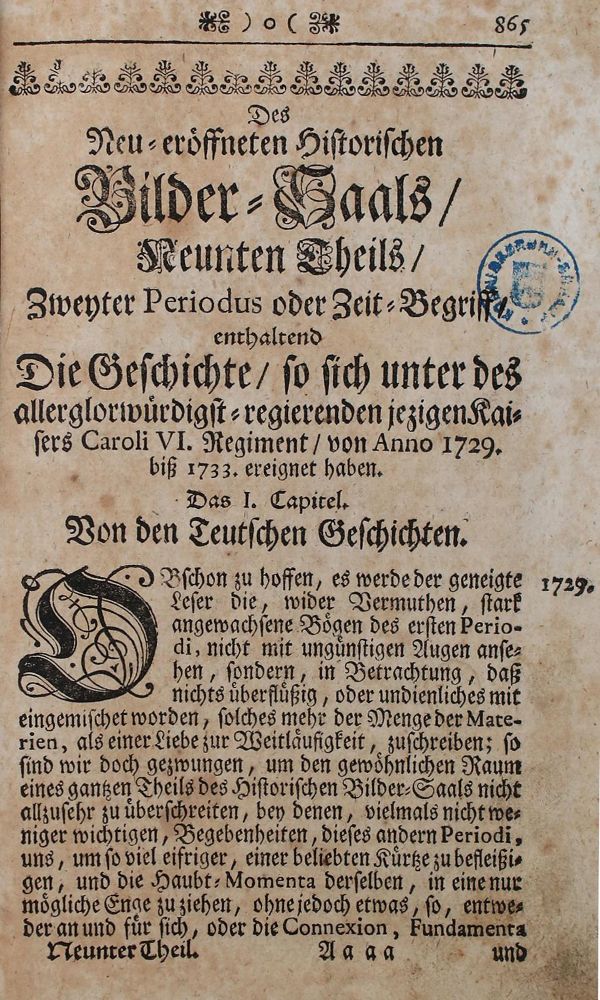 ) o ( 865
Des
Neu-eröffneten Historischen
Bilder-Saals/
Neunten Theils/
Zweyter Periodus oder Zeit-Begriff/
enthaltend
Die Geschichte/ so sich unter des
allerglorwürdigst-regierenden jezigen Kai-
sers Caroli VI. Regiment/ von Anno 1729.
biß 1733. ereignet haben.
Das I. Capitel.
Von den Teutschen Geschichten.
OBschon zu hoffen, es werde der geneigte 1729.
Leser die, wider Vermuthen, stark
angewachsene Bögen des ersten Perio-
di, nicht mit ungünstigen Augen anse-
hen, sondern, in Betrachtung, daß
nichts überflüßig, oder undienliches mit
eingemischet worden, solches mehr der Menge der Mate-
rien, als einer Liebe zur Weitläufigkeit, zuschreiben; so
sind wir doch gezwungen, um den gewöhnlichen Raum
eines gantzen Theils des Historischen Bilder-Saals nicht
allzusehr zu überschreiten, bey denen, vielmals nicht we-
niger wichtigen, Begebenheiten, dieses andern Periodi,
uns, um so viel eifriger, einer beliebten Kürtze zu befleißi-
gen, und die Haubt-Momenta derselben, in eine nur
mögliche Enge zu ziehen, ohne jedoch etwas, so, entwe-
der an und für sich, oder die Connexion, Fundamenta
Neunter Theil. A a a a und